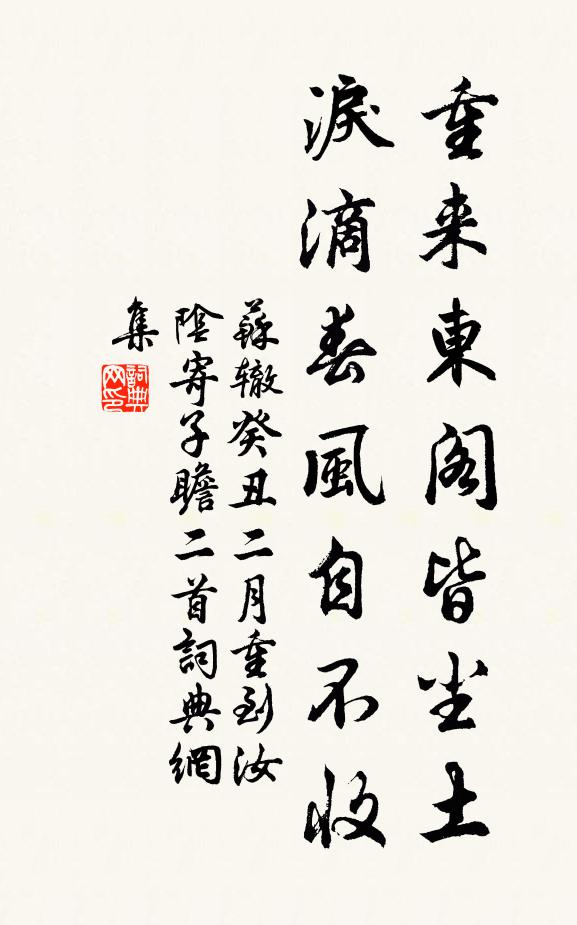 重来東阁皆尘土
淚滴春風自不收
蘇辙癸丑二月重到汝
陰寄子瞻二首詞典網
集
詞典網印